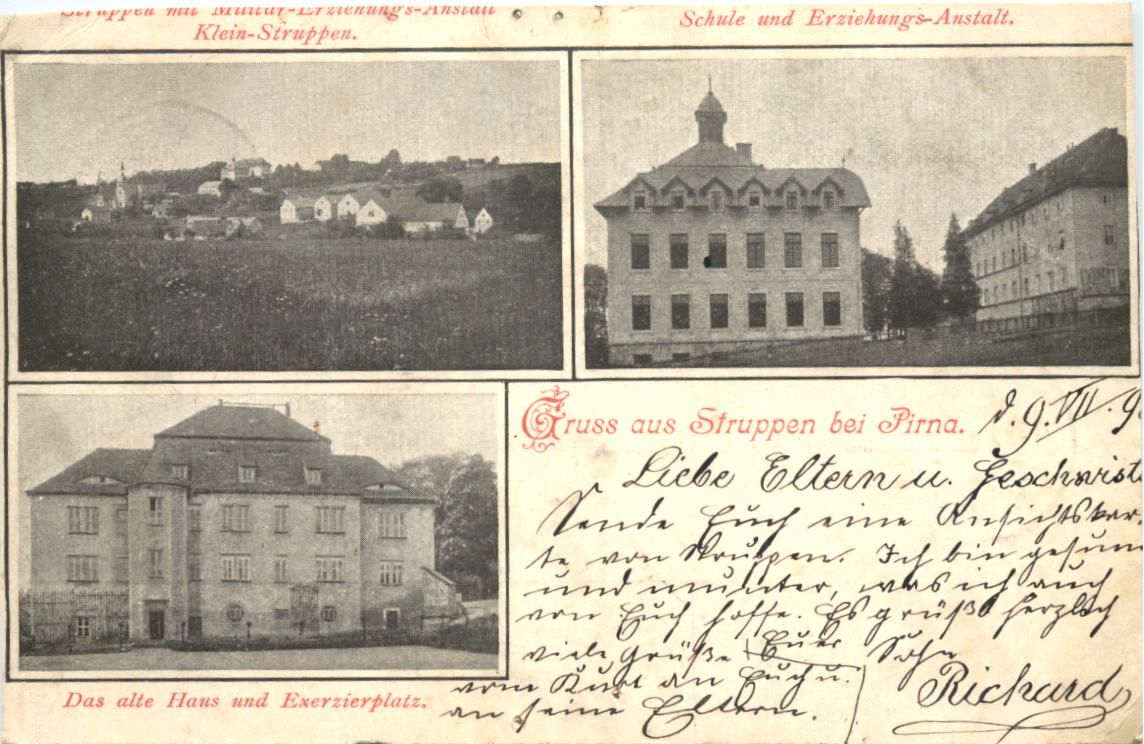 Struppen mit Militär-Erziehungs-Anstalt
Klein-Struppen.
Schule und Erziehungs-Anstalt.
Gruss aus Struppen bei Pirna.
d. 9. VII. 9
Liebe Eltern u. Geschwist
Sende Euch eine Ansichtskar-
te von Struppen. Ich bin gesun
und munter, was ich auch
von Euch hoffe. Es grüßt herzlich
Euer Sohn
Richard
viele Grüße
vom Kurt an Euch u.
an seine Eltern.
Das alte Haus und Exerzierplatz.